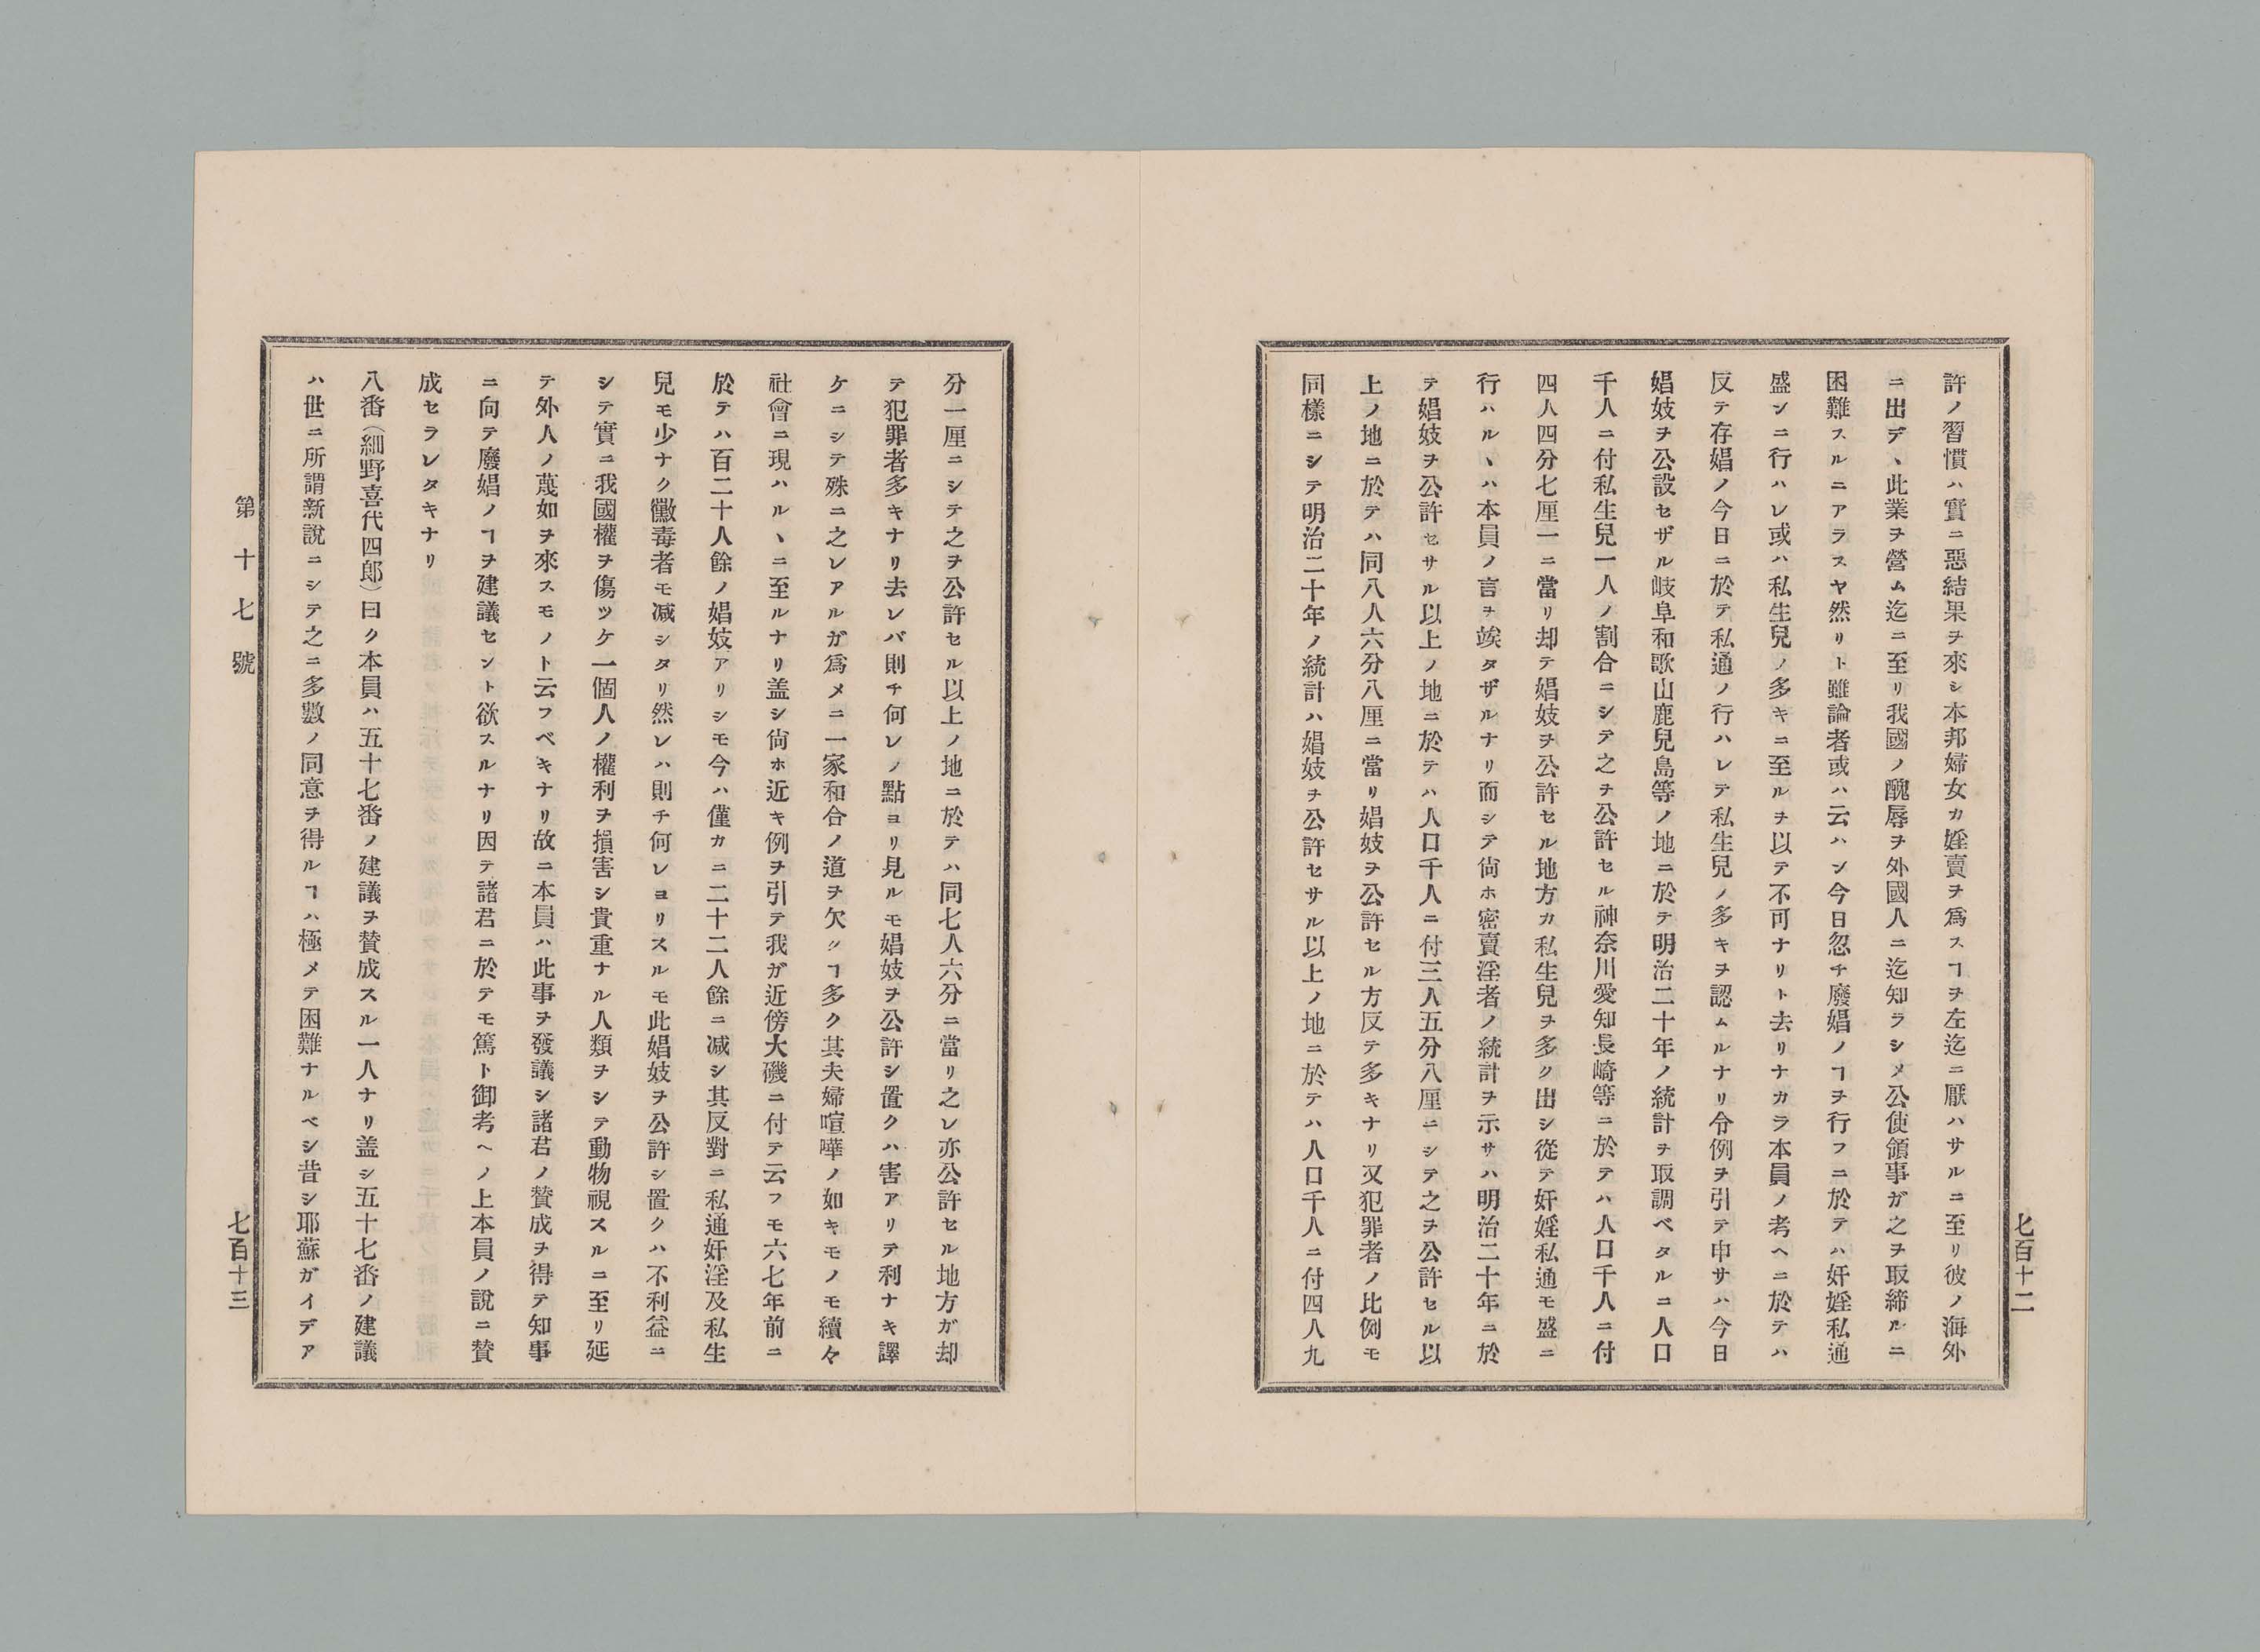 許ノ習慣ハ實ニ惡結果ヲ來シ本邦婦女カ婬賣ヲ爲スヿヲ左迄ニ厭ハサルニ至リ彼ノ海外
ニ出デヽ此業ヲ營ム迄ニ至リ我國ノ醜辱ヲ外國人ニ迄知ラシメ公使領事ガ之ヲ取締ルニ
困難スルニアラスヤ然リト雖論者或ハ云ハン今日忽チ廢娼ノヿヲ行フニ於テハ奸婬私通
盛ンニ行ハレ或ハ私生兒ノ多キニ至ルヲ以テ不可ナリト去リナカラ本員ノ考ヘニ於テハ
反テ存娼ノ今日ニ於テ私通ノ行ハレテ私生兒ノ多キヲ認ムルナリ令例ヲ引テ申サハ今日
娼妓ヲ公設セザル岐阜和歌山鹿兒島等ノ地ニ於テ明治二十年ノ統計ヲ取調ベタルニ人口
千人ニ付私生兒一人ノ割合ニシテ之ヲ公許セル神奈川愛知長崎等ニ於テハ人口千人ニ付
四人四分七厘一ニ當リ却テ娼妓ヲ公許セル地方カ私生兒ヲ多ク出シ從テ奸婬私通モ盛ニ
行ハルヽハ本員ノ言ヲ竢タザルナリ而シテ尙ホ密賣淫者ノ統計ヲ示サハ明治二十年ニ於
テ娼妓ヲ公許セサル以上ノ地ニ於テハ人口千人ニ付三人五分八厘ニシテ之ヲ公許セル以
上ノ地ニ於テハ同八人六分八厘ニ當リ娼妓ヲ公許セル方反テ多キナリ又犯罪者ノ比例モ
同樣ニシテ明治二十年ノ統計ハ娼妓ヲ公許セサル以上ノ地ニ於テハ人口千人ニ付四人九
七百十二
分一厘ニシテ之ヲ公許セル以上ノ地ニ於テハ同七人六分ニ當リ之レ亦公許セル地方ガ却
テ犯罪者多キナリ去レバ則チ何レノ點ヨリ見ルモ娼妓ヲ公許シ置クハ害アリテ利ナキ譯
ケニシテ殊ニ之レアルガ爲メニ一家和合ノ道ヲ欠クヿ多ク其夫婦喧嘩ノ如キモノモ續々
社會ニ現ハルヽニ至ルナリ盖シ尙ホ近キ例ヲ引テ我ガ近傍大磯ニ付テ云フモ六七年前ニ
於テハ百二十人餘ノ娼妓アリシモ今ハ僅カニ二十二人餘ニ减シ其反對ニ私通奸淫及私生
兒モ少ナク黴毒者モ减シタリ然レハ則チ何レヨリスルモ此娼妓ヲ公許シ置クハ不利益ニ
シテ實ニ我國權ヲ傷ツケ一個人ノ權利ヲ損害シ貴重ナル人類ヲシテ動物視スルニ至リ延
テ外人ノ蔑如ヲ來スモノト云フベキナリ故ニ本員ハ此事ヲ發議シ諸君ノ賛成ヲ得テ知事
ニ向テ廢娼ノヿヲ建議セント欲スルナリ因テ諸君ニ於テモ篤ト御考ヘノ上本員ノ說ニ賛
成セラレタキナリ
八番（細野喜代四郎）曰ク本員ハ五十七番ノ建議ヲ賛成スル一人ナリ盖シ五十七番ノ建議
ハ世ニ所謂新說ニシテ之ニ多數ノ同意ヲ得ルヿハ極メテ困難ナルベシ昔シ耶蘇ガイデア
第十七號
七百十三